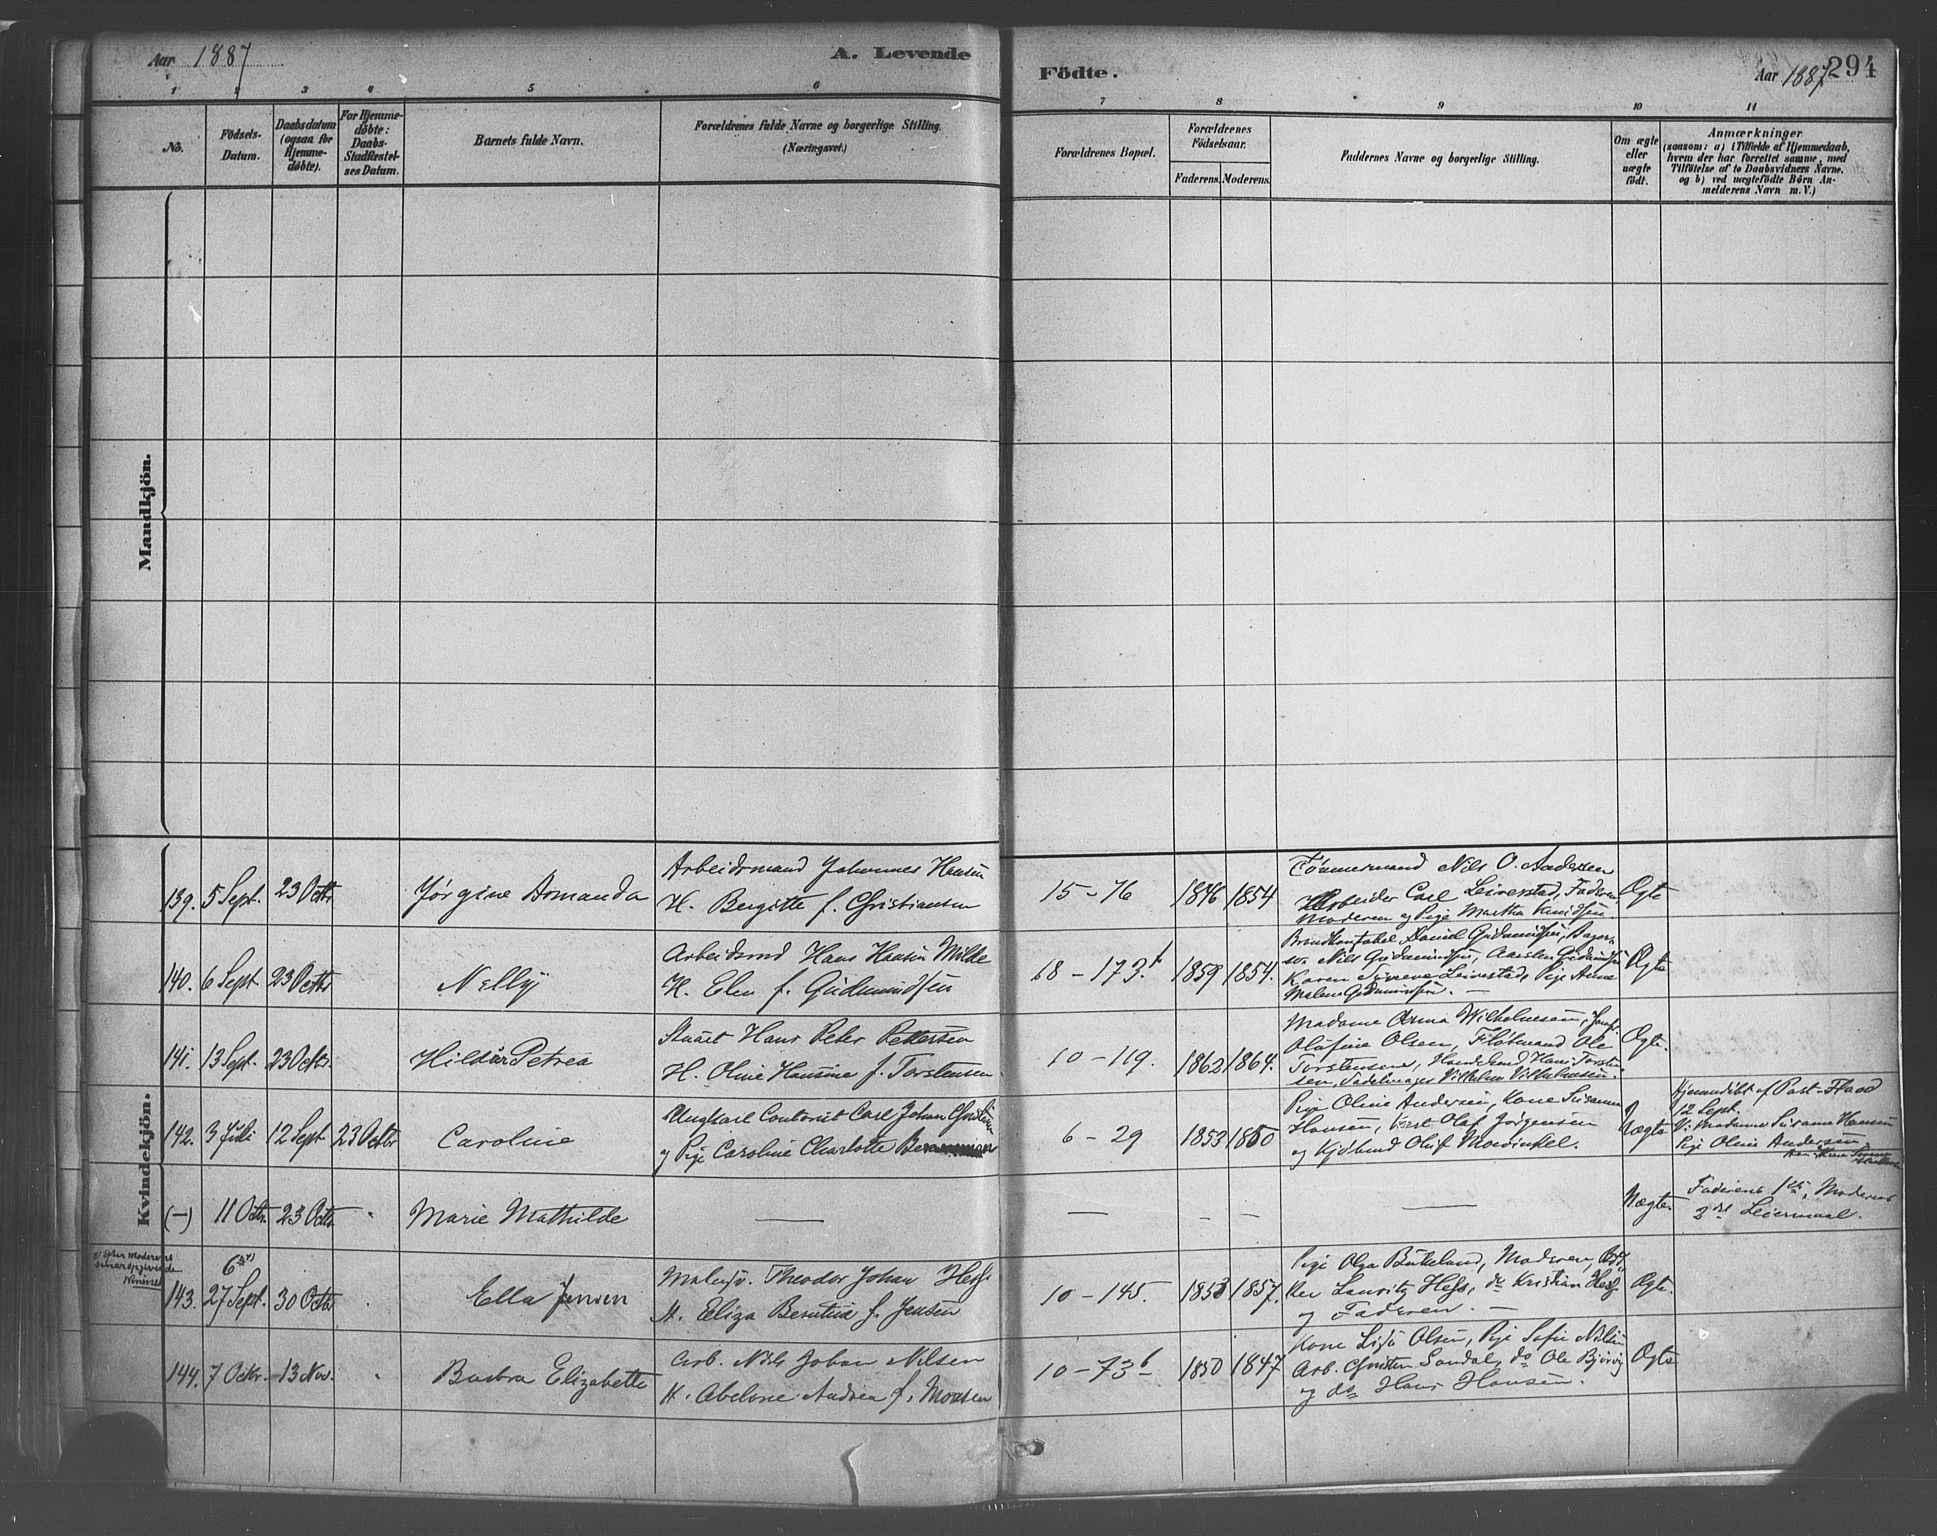 Aar 1887
A. Levende
Födte.
Aar 1887
294
1 2 3 4 5 6 7 8 9 10 11
No.
Födsels-
Datum.
Daabsdatum
(ogsaa for
Hjemme-
døbte).
For Hjemme-
døbte:
Daabs-
Stadfæstel-
ses Datum.
Barnets fulde Navn.
Forældrenes fulde Navne og borgerlige Stilling.
(Næringsvei.)
Forældrenes Bopæl.
Forældrenes
Födselsaar.
Faderens. Moderens.
Faddernes Navne og borgerlige Stilling.
Om ægte
eller
uægte
født.
Anmærkninger
(saasom: a) i Tilfælde af Hjemmedaab,
hvem der har forrettet samme, med
Tilføielse af to Daabsvidners Navne.
og b) ved uægtefødte Børn An-
melderens Navn m. V.)
Mandkjön.
Kvindekjön.
139. 5 Sept. 23 Octbr Jörgine Amanda
Arbeidsmand Johannes Hansen
H. Bergitte f. Christiansen
15-76 1846 1854
Tömmermand Nils O. Andersen
Arbeider Carl Leirestad, Faderen
Moderen og Pige Martha Knudsen.
Ægte
140. 6 Sept 23 Octbr Nelly
Arbeidsmd Hans Hansen Milde
H. Elen f. Gudmundsen
18-173. 1859 1854.
Brandkonstabel Daniel Gudmundsen,
Nils Gudmundsen, Gudmundsen
Karen Leirestad, Pige Anne
Malene Gudmundsen. —
Ægte
141. 13 Sept. 23 Octbr. Hildur Petrea
Stuart Hans Peter Pettersen
H. Oline Hansine f. Torstensen
10-119. 1862 1864.
Madame Anna Wilhelmsen,
Olufine Olsen, Flötmand Ole
Torstensen, Hans Torsten-
sen, Sadelmager Vilhelm Vilhelmsen.
Ægte.
142. 3 Juli 12 Sept 23 Octbr Caroline
Ungkarl Contorist Carl Johan
og Pige Caroline Charlotte
6-29 1853 1860
Pige Oline Andersen, Kone Susanne
Hansen, Olaf Jörgensen
og Kjöbmd Oluf Mowinkel.
Uægte
Hjemmedöbt af Past. Flood
12 Sept.
V. Madame Susanne Hansen
Pige Oline Andersen
(-) 11 Octbr. 23 Octbr " Marie Mathilde
— — — — —
Uægte
Faderens 1ste, Moderens
2det Leiermaal.
x) efter Moderens
senere opgivende
6 x)
143. 27 Sept. 30 Octbr " Ella Jensen
Malersv. Theodor Johan Hess.
H. Eliza Berntine f. Jensen
10-145. 1853 1857.
Pige Olga Birkeland, Moderen,
Lauritz Hess, do Kristian Hess.
og Faderen. —
Ægte.
144. 7 Octbr. 13 Nov. " Barbra Elizabette
Arb. Nils Johan Nilsen
H. Abelone Andrea f. Monsen
10-73b 1850 1847
Kone Lisa Olsen, Pige Sofie Nilsen
Arb. Christen Sandal, do Ole
og do Hans Hansen.
Ægte